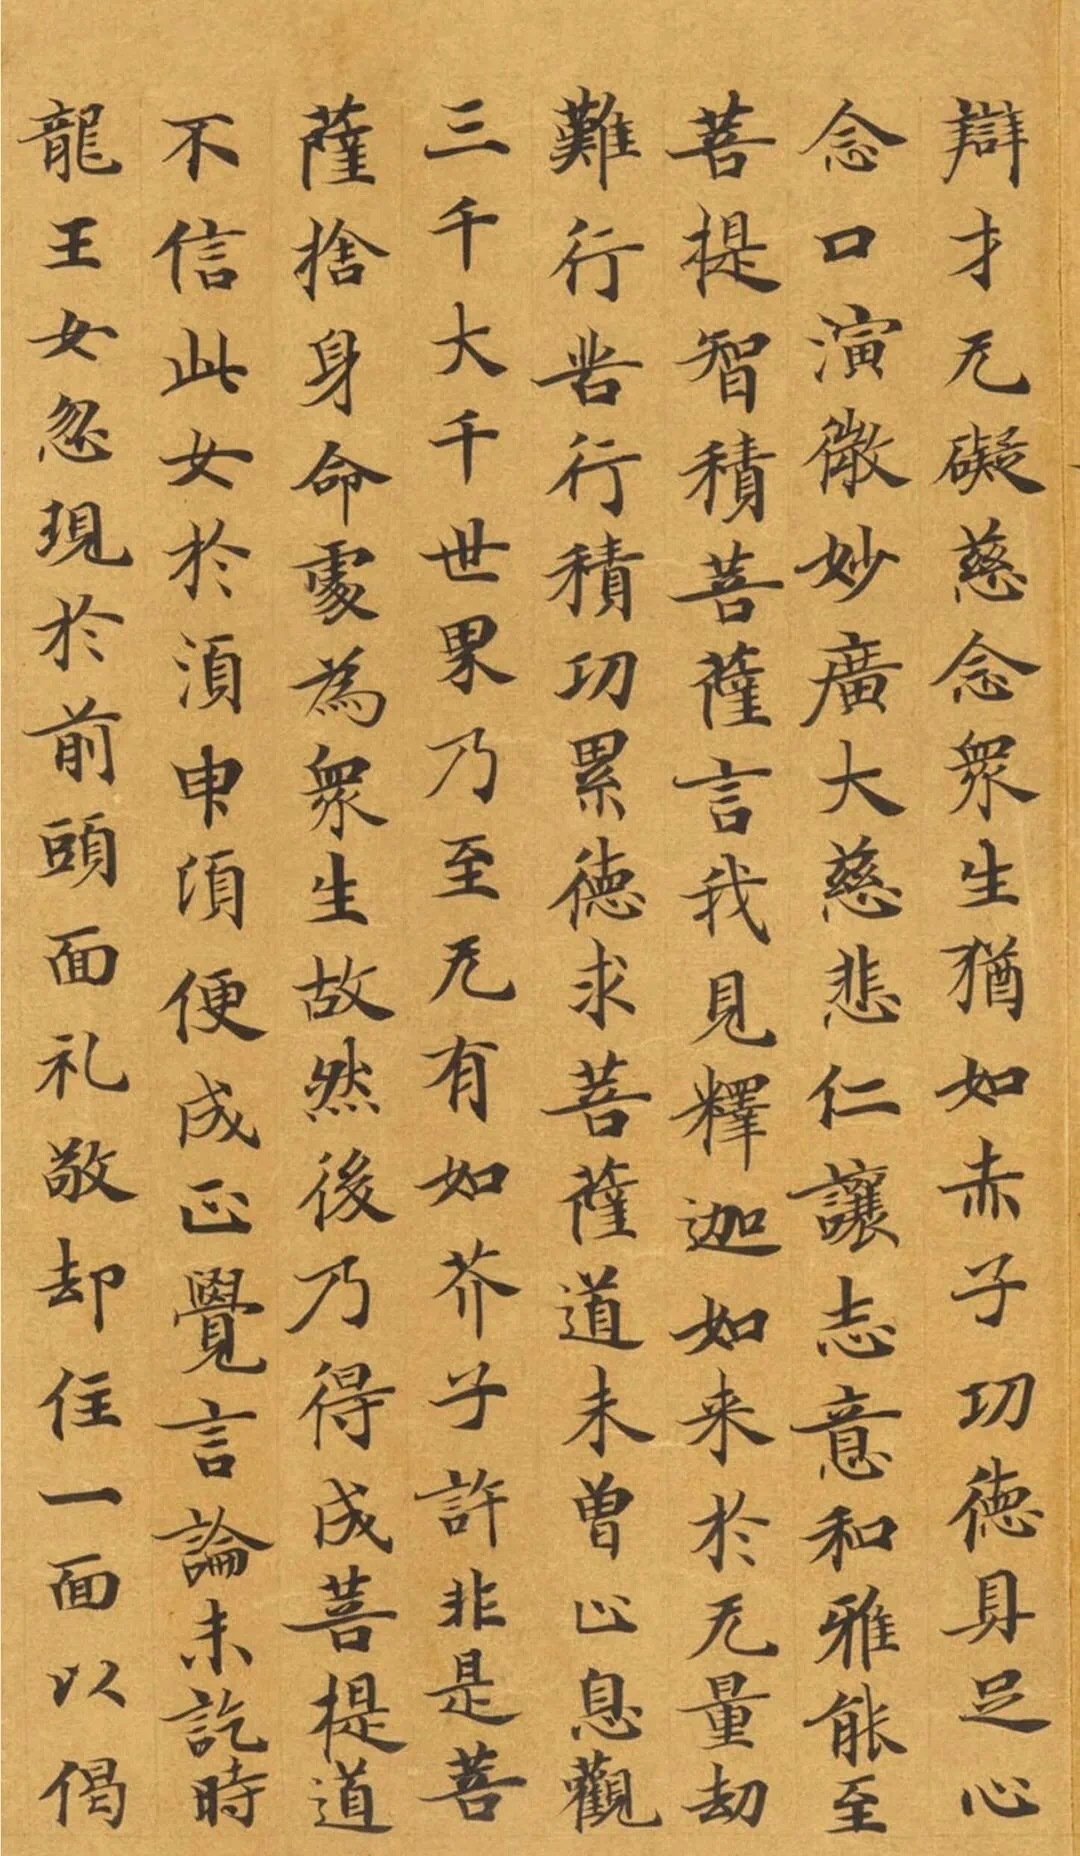 辯才无礙慈念衆生猶如赤子功德具足心
念口演微妙廣大慈悲仁讓志意和雅能至
菩提智積菩薩言我見釋迦如来於无量劫
難行苦行積功累德求菩薩道未曽止息觀
三千大千世界乃至无有如芥子許非是菩
薩捨身命處為衆生故然後乃得成菩提道
不信此女於須申須便成正覺言論未訖時
龍王女忽現於前頭面礼敬却住一面以偈